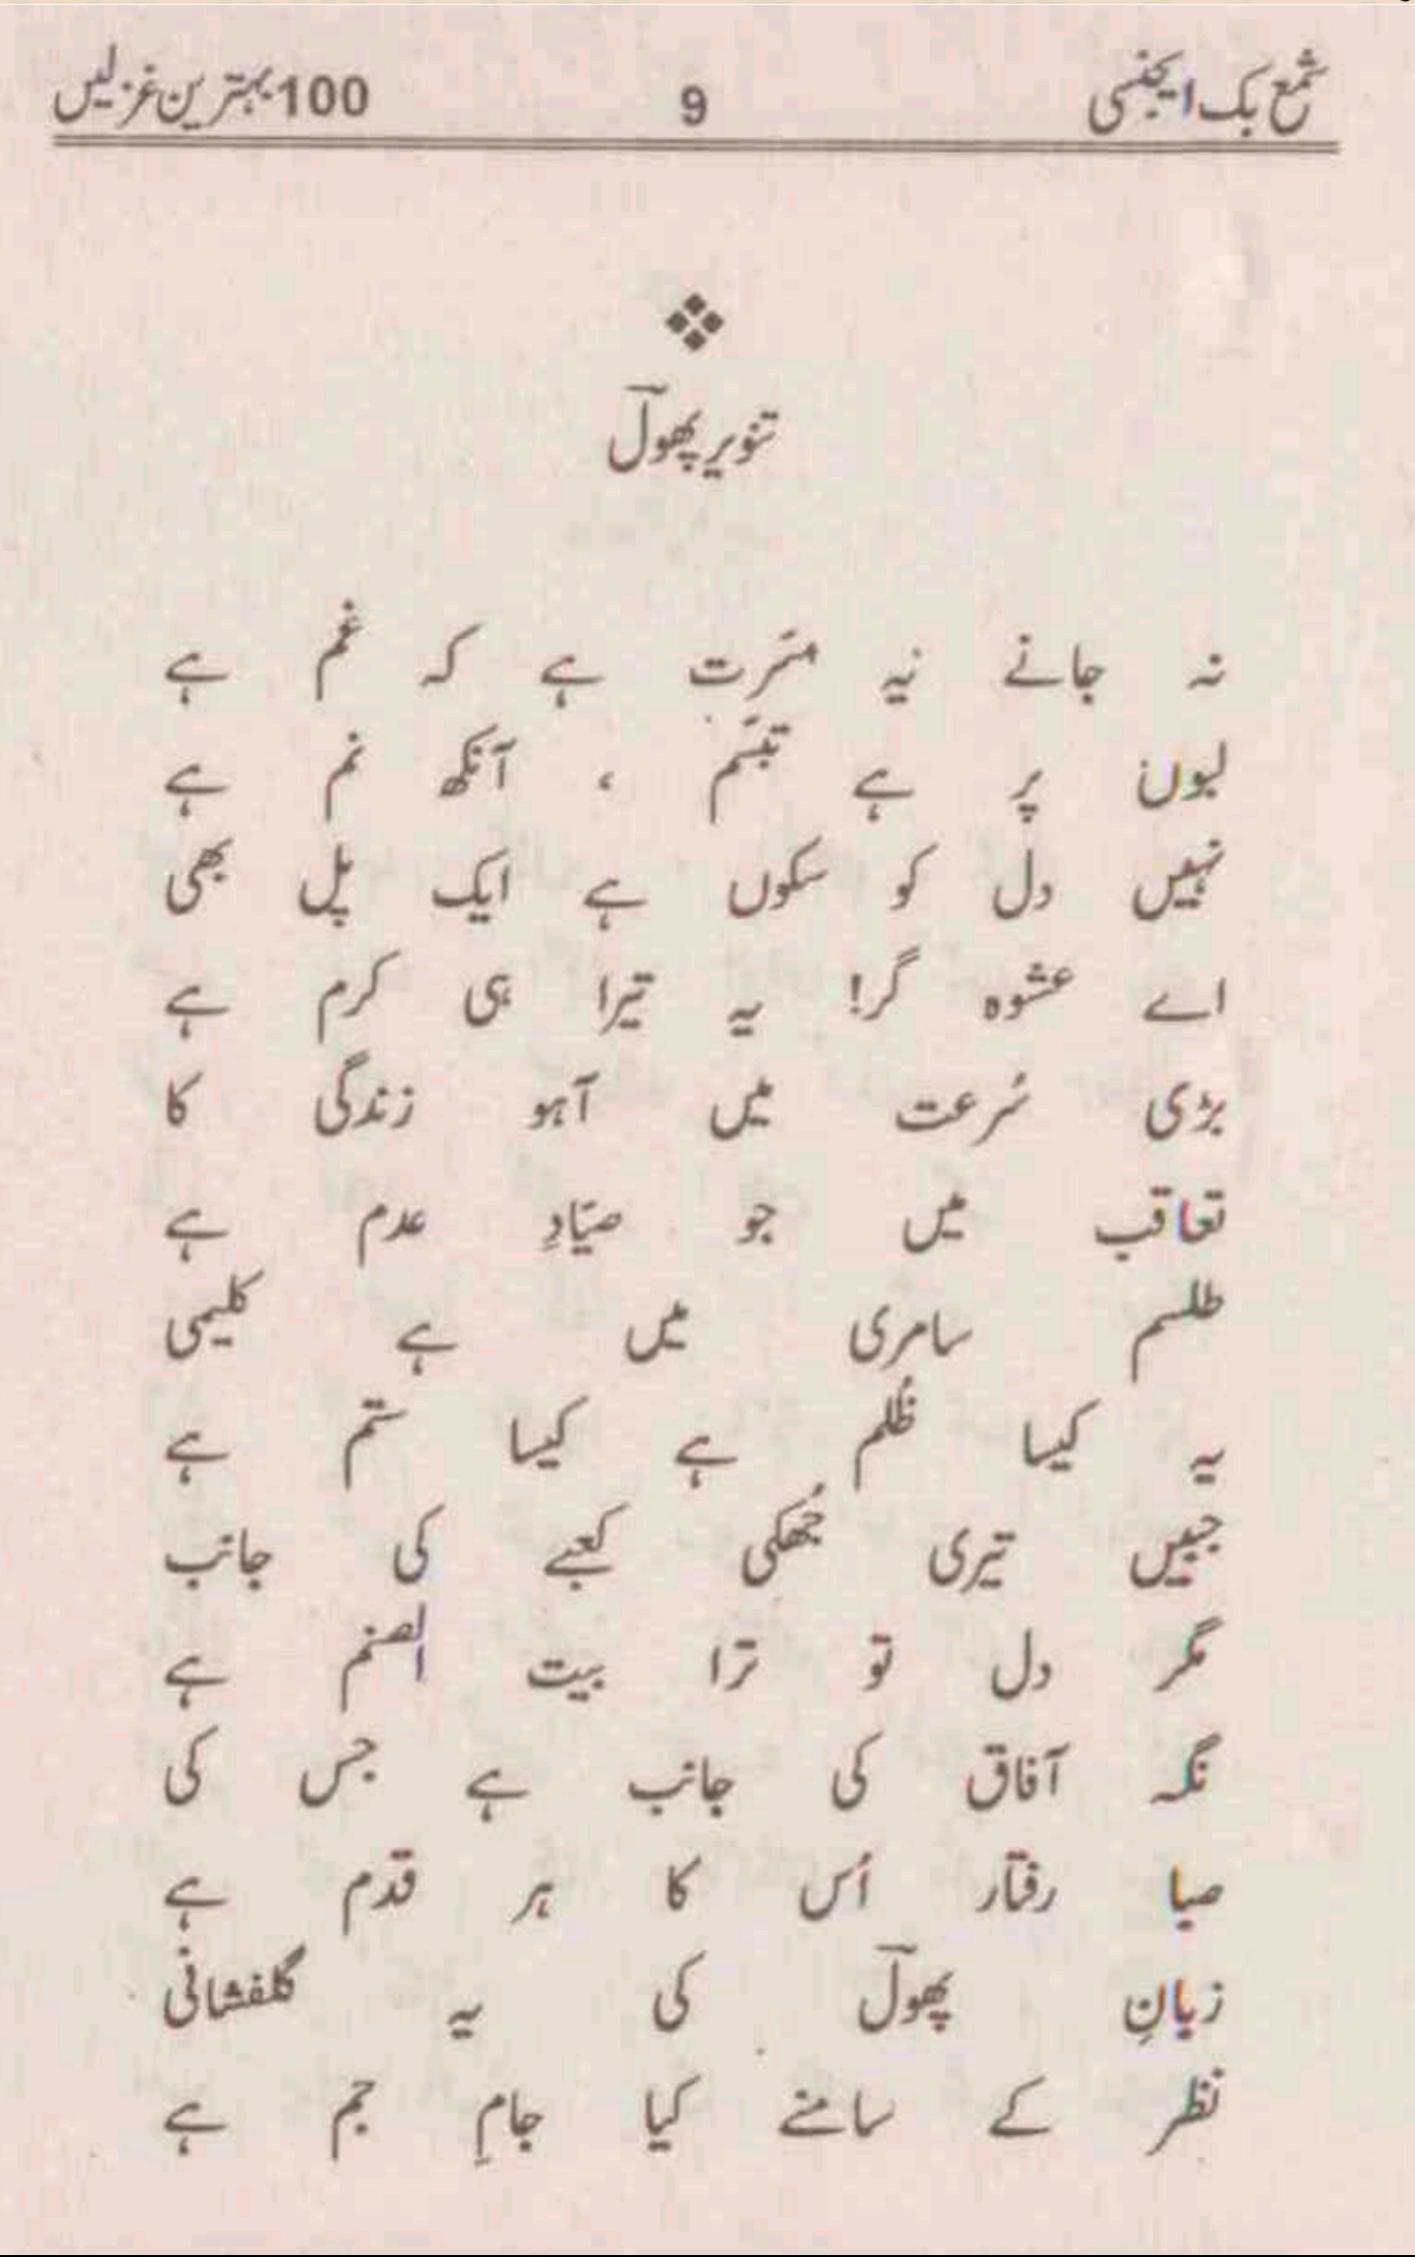 شمع بک ایجنسی 9 100 بہترین غزلیں
تنویر پھولؔ
نہ جانے یہ مسَرت ہے کہ غم ہے
لبوں پر ہے تبسّم ، آنکھ نم ہے
نہیں دل کو سکوں ہے ایک پل بھی
اے عشوہ گر! یہ تیرا ہی کرم ہے
بڑی سُرعت میں آہو زندگی کا
تعاقب میں جو صیّادِ عدم ہے
طلسم سامری میں ہے کلیمی
یہ کیسا ظُلم ہے کیسا ستم ہے
جبیں تیری جُھکی کعبے کی جانب
مگر دل تو ترا بیت الصنم ہے
نگہ آفاق کی جانب ہے جس کی
صبا رفتار اُس کا ہر قدم ہے
زبانِ پھولؔ کی یہ گلفشانی
نظر کے سامنے کیا جامِ جم ہے